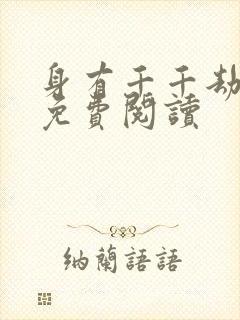 身有千千劫
免費閱讀
納蘭語語